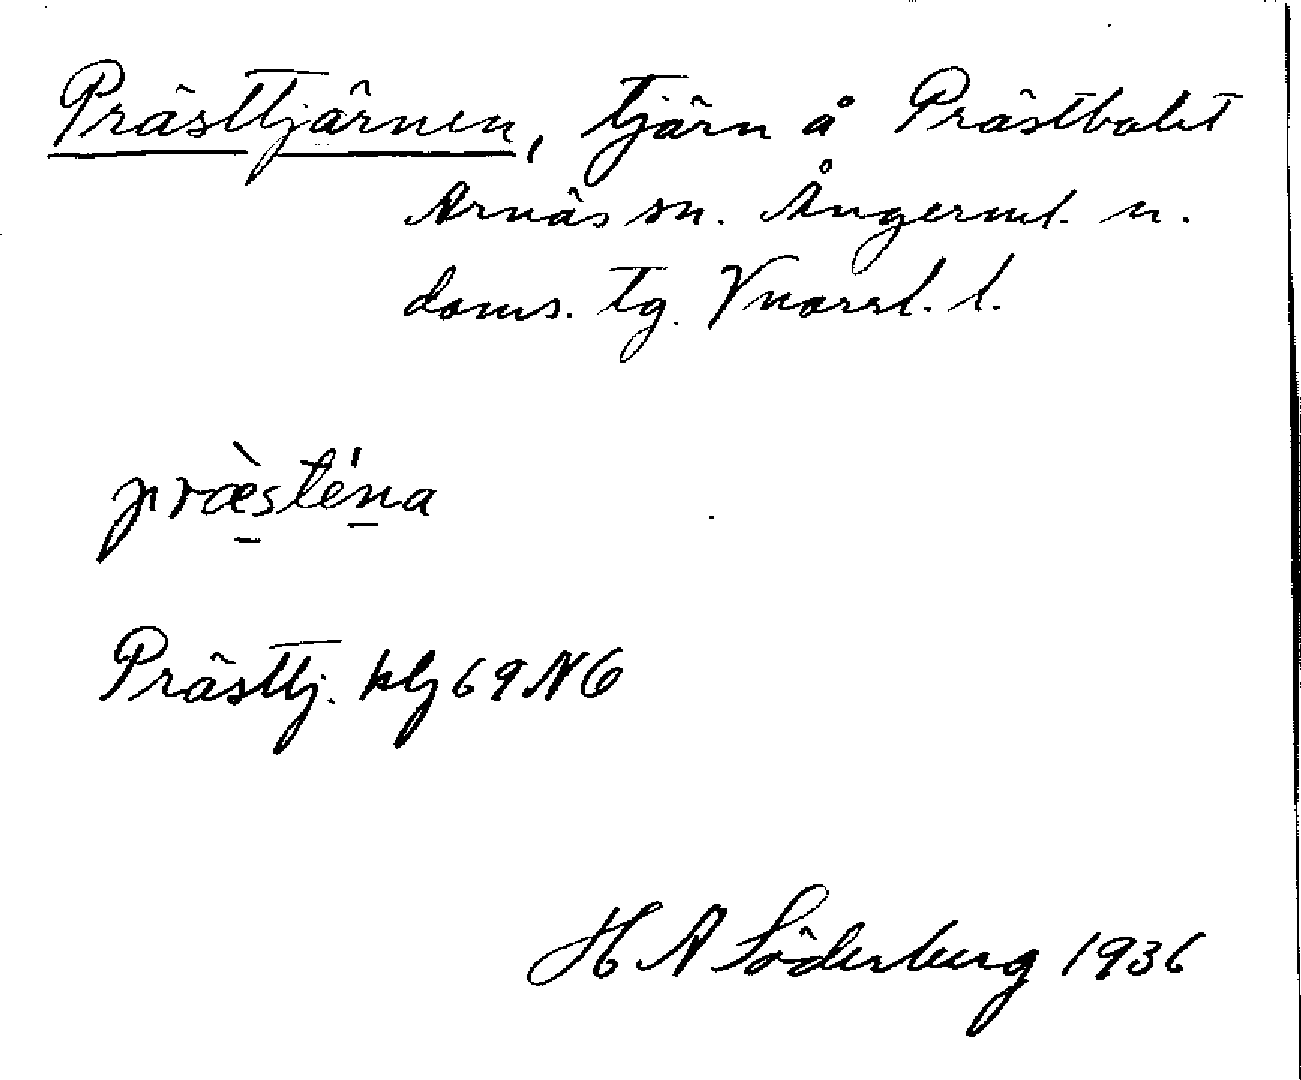 Prästtjärnen, tjärn å Prästbolet
Arnäs sn. Ångerml. n.
doms. tg. Vnorrl. l.
præ̀sté̱na
Prästtj. kbl 69 NÖ
H A Söderberg 1936